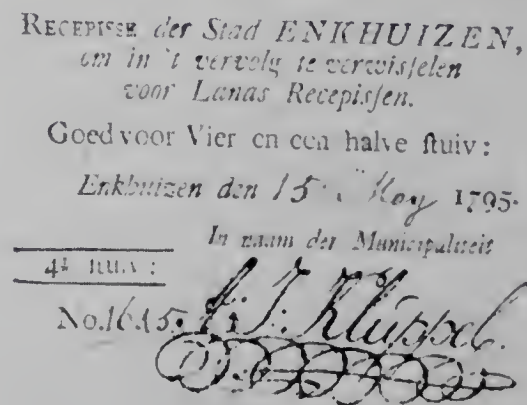 RECEPISSE der Stad ENKHUIZEN,
om in 't vervolg te verwisſelen
voor Lands Recepisſen.
Goed voor Vier en een halve ſtuiv:
Enkhuizen den 15. May 1795.
In naam der Municipaliteit
4½ ſtuiv:
No. 1615. Kluppel.